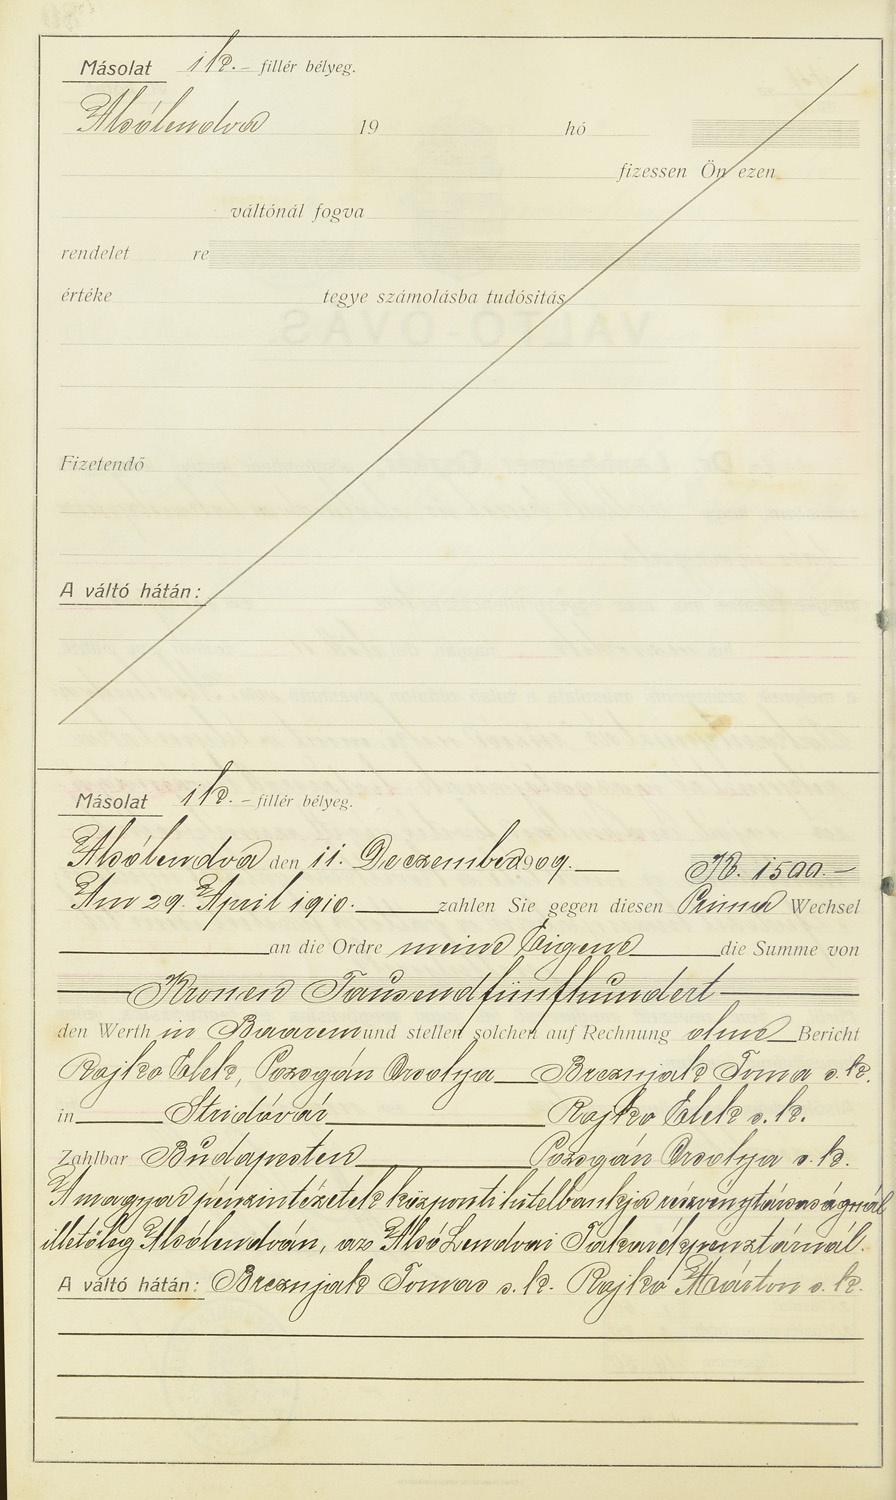 Másolat 1 k. – fillér bélyeg.
Alsólendva 19 hó
fizessen Ön ezen
váltónál fogva
rendelet re
értéke tegye számolásba tudósitás
Fizetendő
A váltó hátán:
Másolat 1 k. – fillér bélyeg.
Alsólendva den 11. Dezember 1909. — K. 1500. —
Am 29. April 1910. zahlen Sie gegen diesen Prima Wechsel
an die Ordre meine Eigene die Summe von
Kronen Tausendfünfhundert
den Werth in Baarem und stellen solchen auf Rechnung ohne Bericht
Rajko Elek, Pozsgán Orsolya Breznjak Toma s. k.
in Stridóvár Rajko Elek s. k.
Zahlbar Budapesten Pozsgán Orsolya s. k.
A magyar pénzintézetek központi hitelbankja részvénytársaságnál
illetőleg Alsólendván, az Alsó Lendvai Takarékpénztárnál.
A váltó hátán: Breznjak Tomas s. k. Rajko Márton s. k.